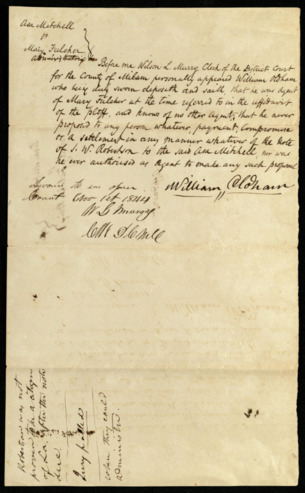 Asa Mitchell
vs
Mary Fulcher
Administratrix
Before me Wilson L Murry Clerk of the District Court
for the County of Milam personally appeared William Oldham
who being duly sworn deposeth and saith that he was Agent
of Mary Fulcher at the time referred to in the affidavit
of the plff, and knows of no other Agent, that he never
proposed to any person whatever, payment, compromise
or a settlement in any manner whatever of the Note
of S. W. Robertson to the said Asa Mitchell nor was
he ever authorised as Agent to make any such proposal
Sworn to in open
Court Nov 1st 1844
William Oldham
W L Murry
Robertson was not
of La. after the note
due
Jury
when they could
administer.